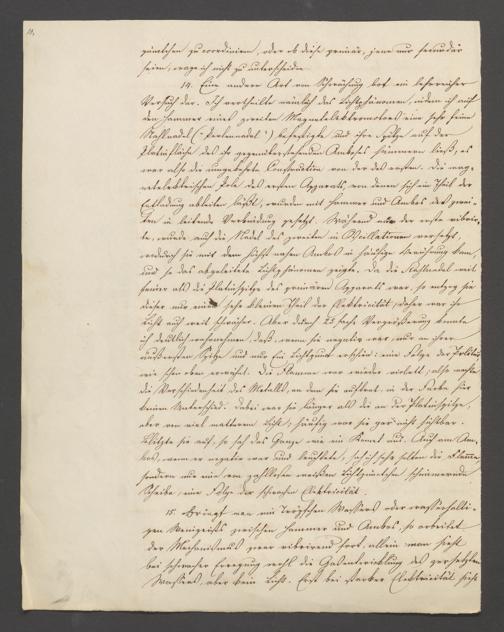 11.
zünden zu coordiniren, oder ob diese primär, jene nur secundär
seien, wage ich nicht zu unterscheiden.
14. Eine andere Art von Schwächung bot ein besonderer
Versuch dar. Ich vertheilte nämlich das Lichtphänomen, indem ich auf
den Hammer eines zweiten Magnetelektromotors eine sehr feine
Stahlnadel ("Perlennadel") befestigte und ihre Spitze auf der
Platinfläche des ihr gegenüberstehenden Amboses hämmern ließ; es
war also die umgekehrte Construction von der des ersten. Die mag-
netelektrischen Pole des ersten Apparats, von denen sich ein Theil der
Entladung ableiten läßt, wurden mit Hammer und Ambos des zwei-
ten in leitende Verbindung gesetzt. Während nun der erste vibrir-
te, wurde auch die Nadel des zweiten in Oscillationen versetzt,
wodurch sie mit dem Ambos in häufige Berührung kam,
und so das abgeleitete Lichtphänomen zeigte. Da die Stahlnadel weit
feiner als die Platinspitze des primären Apparats war, so entzog sie
dieser nur einen sehr kleinen Theil der Elektricität, daher war ihr
Licht auch weit schwächer. Aber durch 25 fache Vergrößerung konnte
ich deutlich wahrnehmen, daß, wenn sie negativ war, nur an ihrer
äußersten Spitze und nur ein Lichtpunkt erschien: eine Folge der Polarität
wie schon oben erwähnt. Die Flamme war wieder violett; also machte
die Verschiedenheit des Metalls, an dem sie auftrat, in der Farbe hier
keinen Unterschied. Dabei war sie länger als die an der Platinspitze,
aber von viel matterem Licht; häufig war sie gar nicht sichtbar.
Blitzte sie auf, so sah das Ganze wie ein Komet aus. Auch am Am-
bos, wenn er negativ war und leuchtete, sah ich sehr selten die Flamme
sondern nur eine von zahllosen weißen Lichtpünktchen schimmernde
Scheibe, eine Folge der schwachen Elektricität.
15. Bringt man ein Tröpfchen Wassers oder wasserhalti-
gen Weingeists zwischen Hammer und Ambos, so arbeitet
der Mechanismus zwar vibrirend fort, allein man sieht
bei schwacher Erregung wohl die Gasentwicklung des zersetzten
Wassers, aber kein Licht. Erst bei starker Elektricität sieht